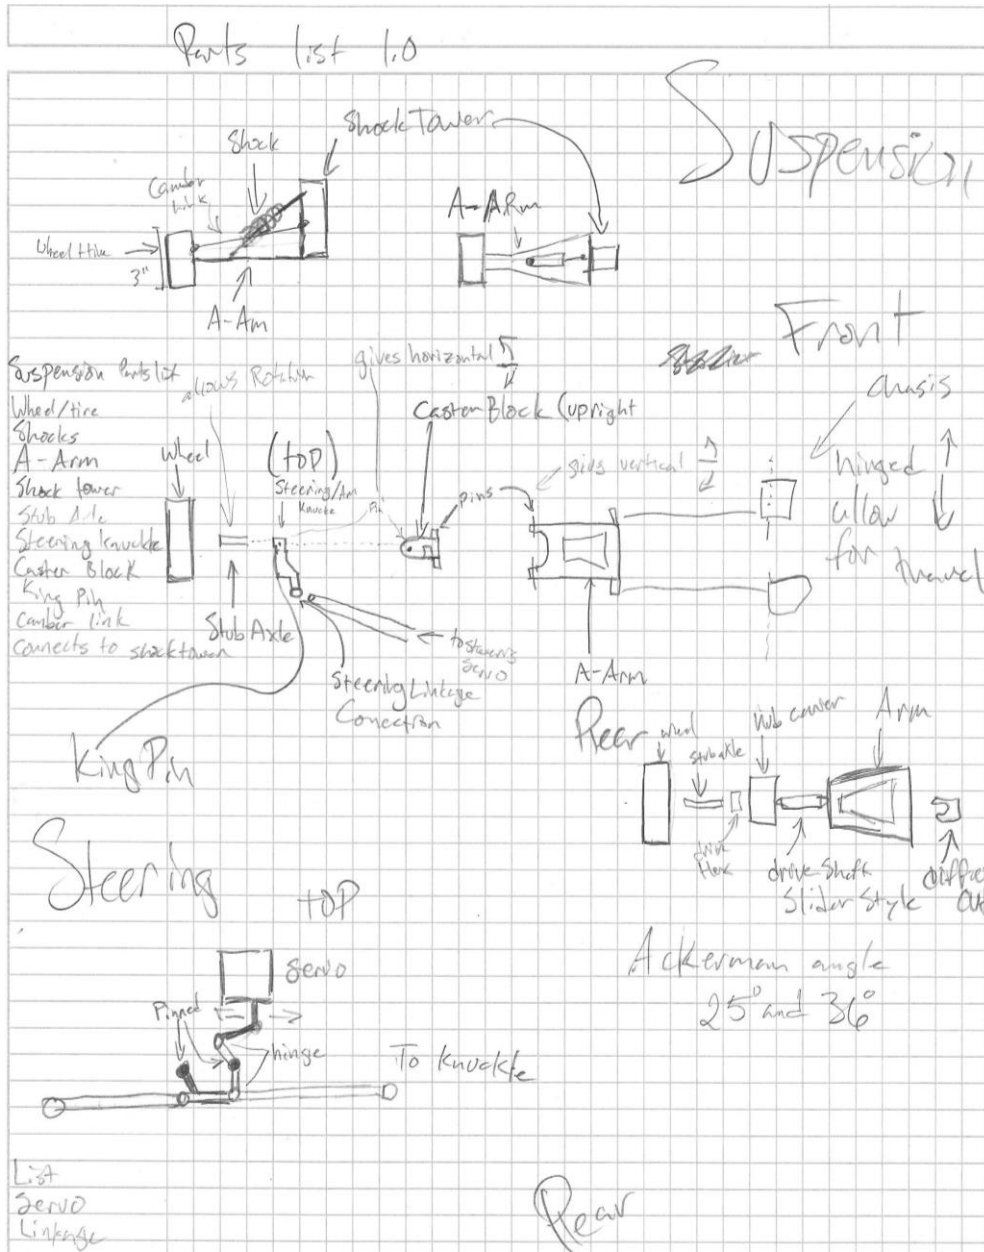 Parts list 1.0
Suspension
Shock Tower
Shock
Camber
link
Wheel + tire
3"
A-Arm
A-ARm
Front
Suspension Parts list
Wheel/tire
Shocks
A-Arm
Shock tower
Stub Axle
Steering knuckle
Caster Block
King Pin
Camber link
Connects to shock tower
allows Rotation
gives horizontal
Caster Block (upright
chasis
hinged
allow
for travel
Wheel
(top)
Steering/Arm
knuckle
Pin
pins
givs vertical
Stub Axle
to steering
servo
Steering Linkage
Conection
A-Arm
King Pin
Rear
wheel
stub axle
hub carrier
Arm
drive
drive shaft
Slider Style
Steering
top
Servo
Pinned
hinge
To knuckle
Ackerman angle
25° and 36°
List
Servo
Linkage
Rear